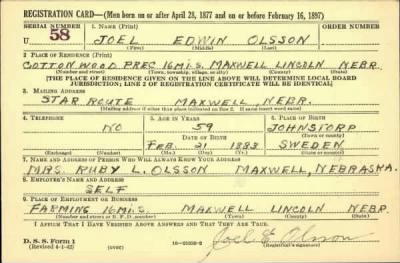 REGISTRATION CARD—(Men born on or after April 28, 1877 and on or before February 16, 1897)
SERIAL NUMBER 1. Name (Print) ORDER NUMBER
U 58 JOEL EDWIN OLSSON
(First) (Middle) (Last)
2. Place of Residence (Print)
COTTONWOOD PREC 16 mi. S. MAXWELL LINCOLN NEBR.
(Number and street) (Town, township, village, or city) (County) (State)
[THE PLACE OF RESIDENCE GIVEN ON THE LINE ABOVE WILL DETERMINE LOCAL BOARD
JURISDICTION; LINE 2 OF REGISTRATION CERTIFICATE WILL BE IDENTICAL]
3. Mailing Address
STAR ROUTE MAXWELL, NEBR.
(Mailing address if other than place indicated on line 2. If same insert word same)
4. Telephone 5. Age in Years 6. Place of Birth
NO 59 JOHNSTORP
Date of Birth (Town or county)
FEB. 21 1883 SWEDEN
(Exchange) (Number) (Mo.) (Day) (Yr.) (State or country)
7. Name and Address of Person Who Will Always Know Your Address
MRS. RUBY L. OLSSON MAXWELL, NEBRASKA.
8. Employer's Name and Address
SELF
9. Place of Employment or Business
FARMING 16 mi. S. MAXWELL LINCOLN NEBR.
(Number and street or R. F. D. number) (Town) (County) (State)
I Affirm That I Have Verified Above Answers and That They Are True.
D. S. S. Form 1
(Revised 4-1-42) (over) Joel E Olsson
(Registrant's signature)